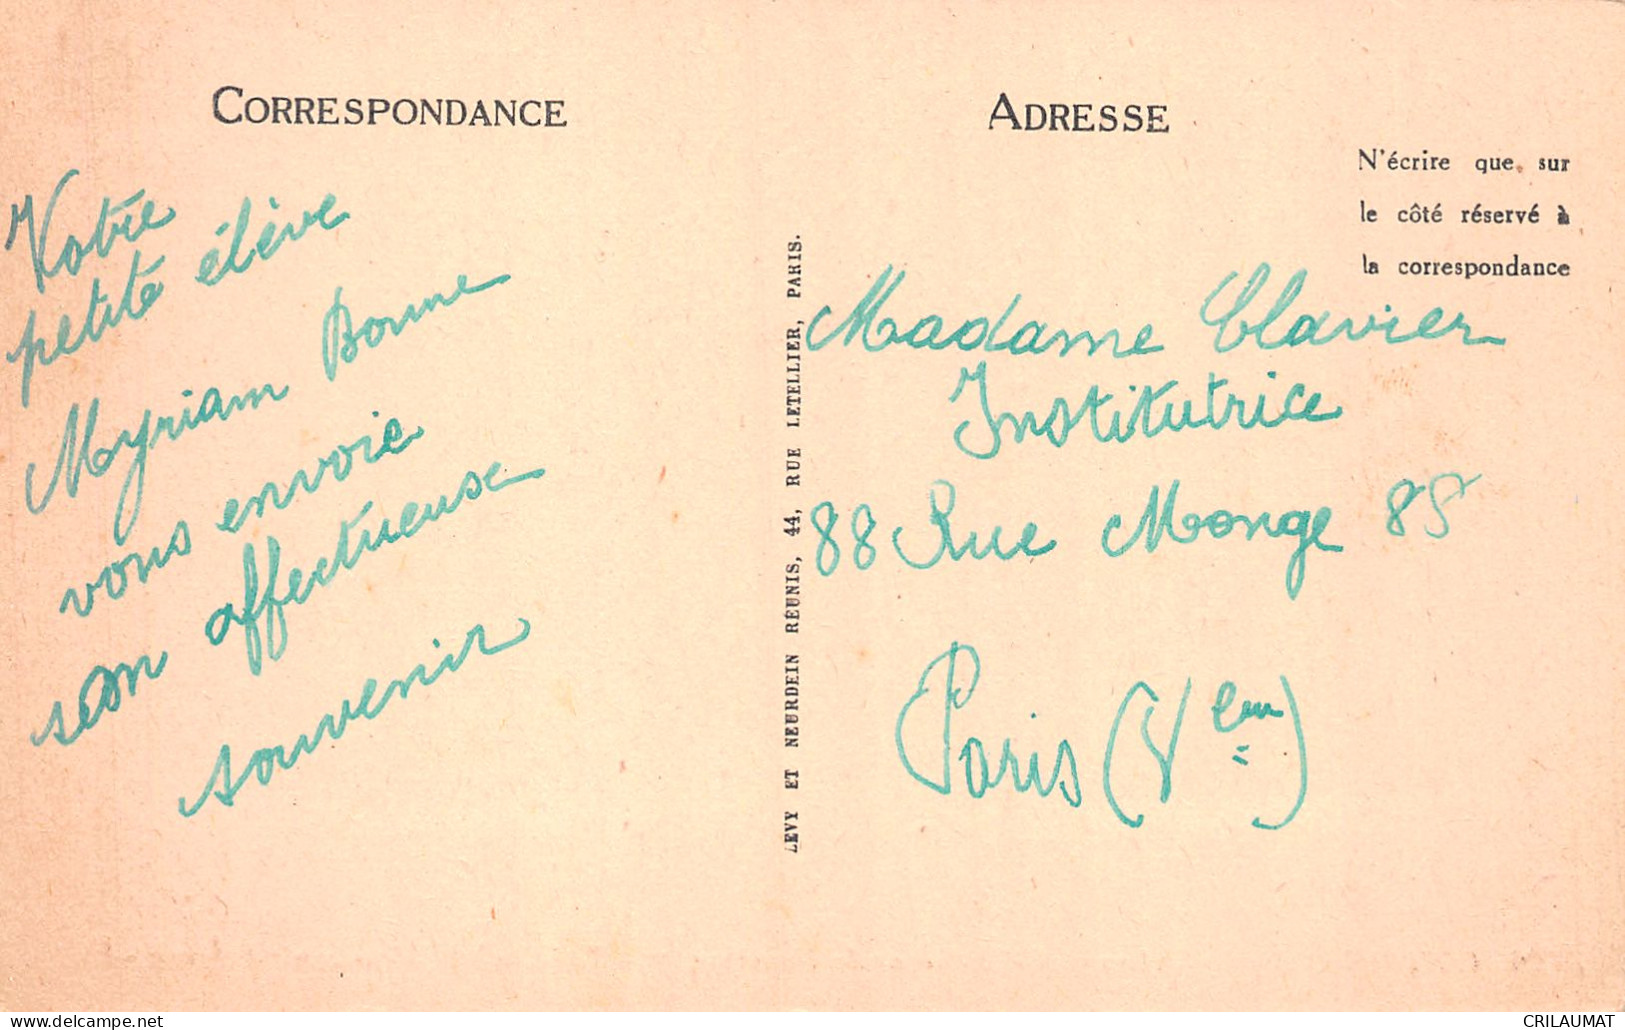 CORRESPONDANCE
Votre
petite élève
Myriam Bonne
vous envoie
son affectueuse
souvenir
LEVY ET NEURDEIN RÉUNIS, 44, RUE LETELLIER, PARIS.
ADRESSE
N'écrire que sur
le côté réservé à
la correspondance
Madame Clavier
Institutrice
88 Rue Monge 85
Paris (Vem)
delcampe.net
CRILAUMAT